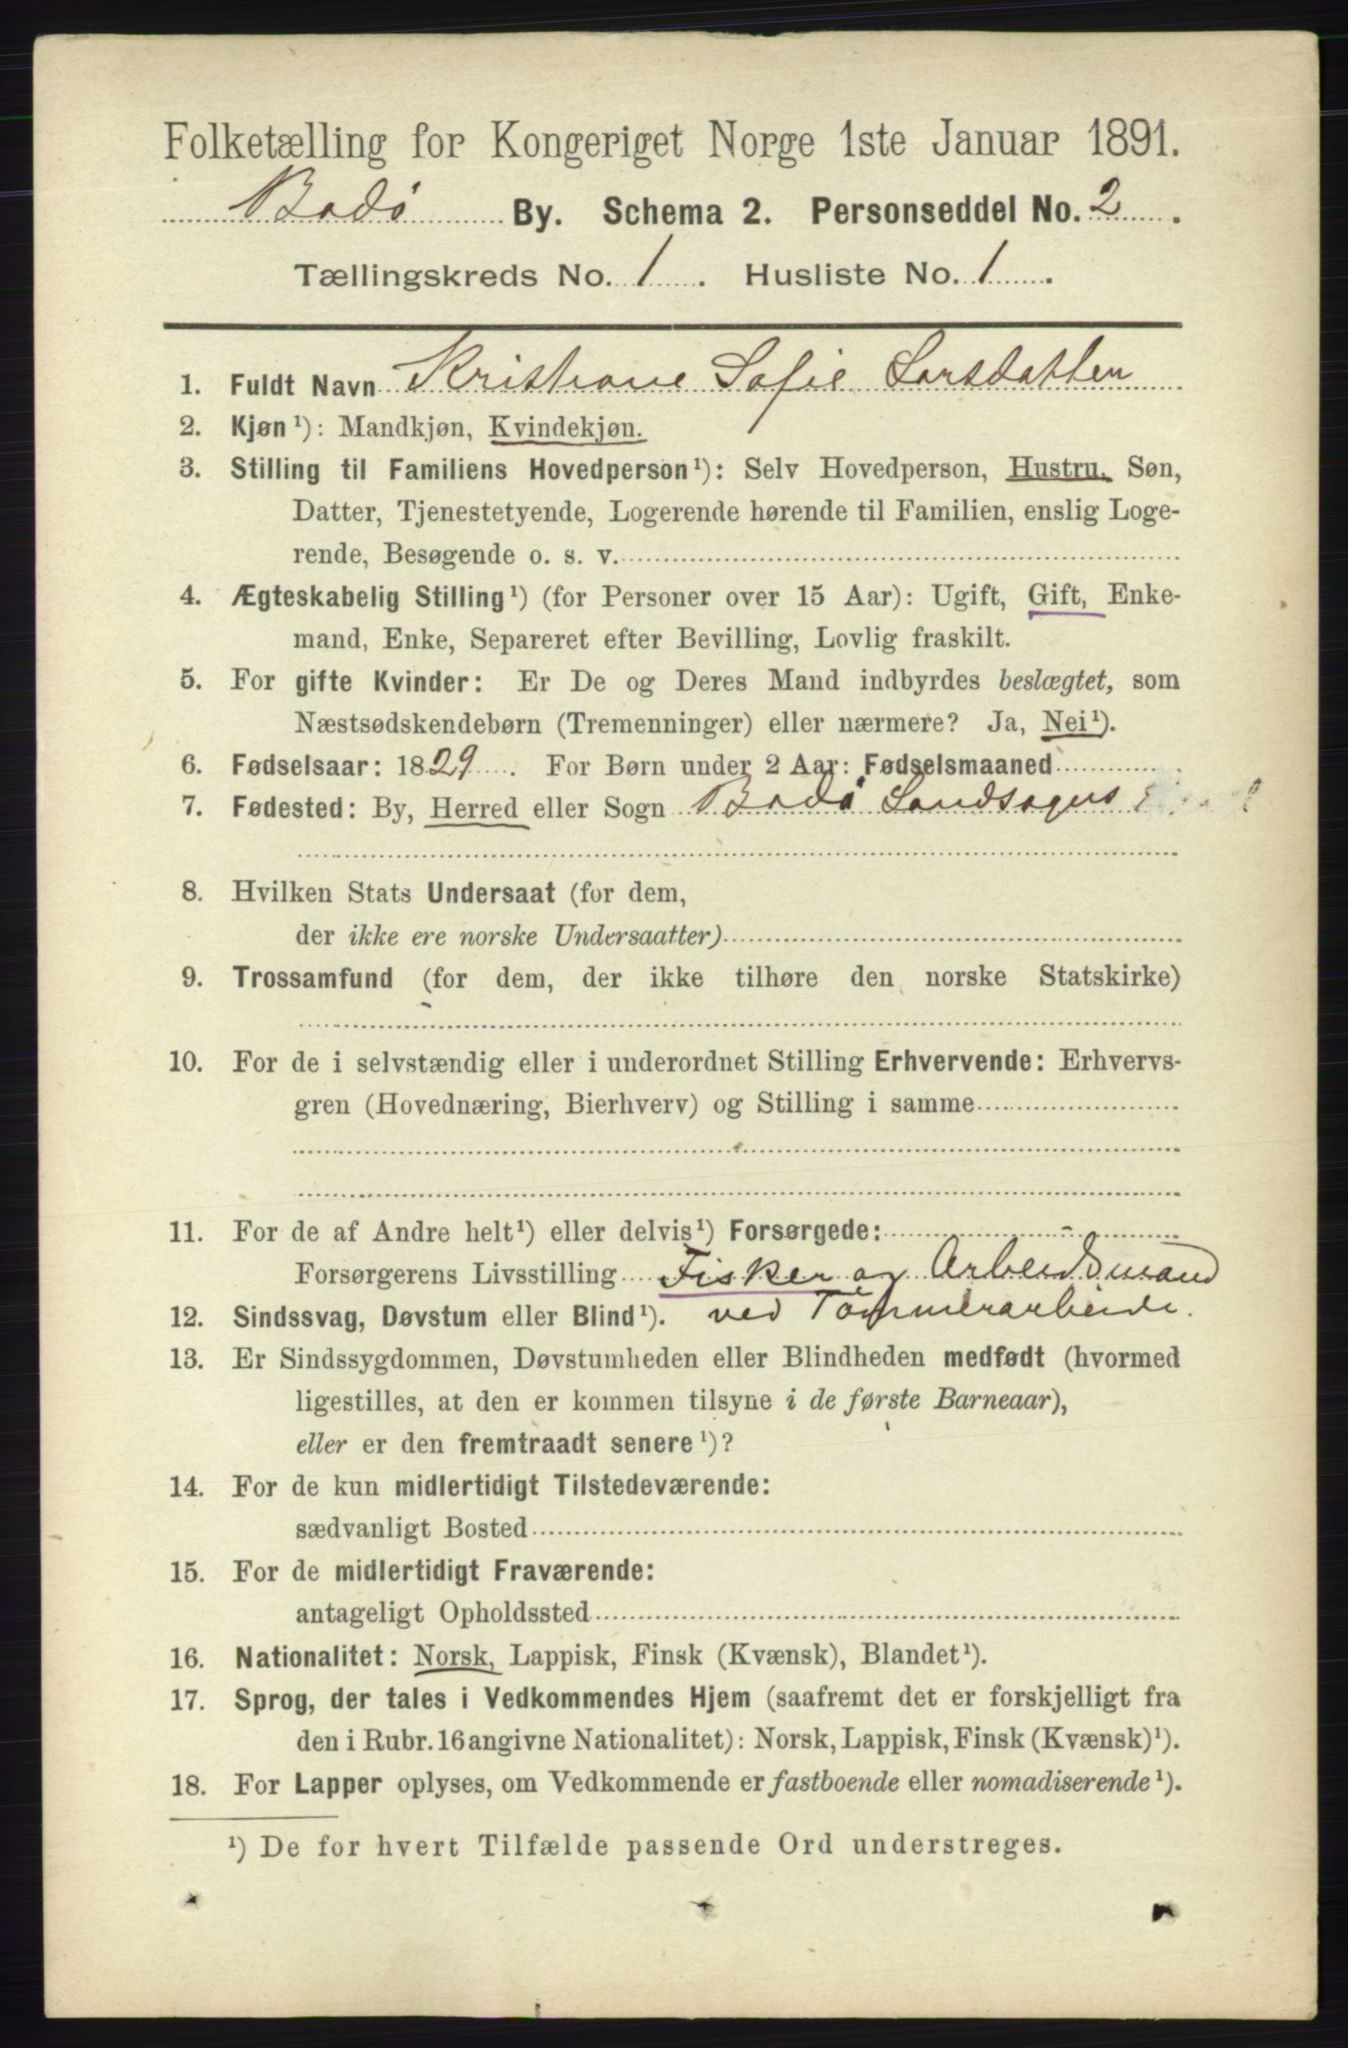 Folketælling for Kongeriget Norge 1ste Januar 1891.
Bodø By. Schema 2. Personseddel No. 2.
Tællingskreds No. 1. Husliste No. 1.
1. Fuldt Navn Kristiane Sofie Larsdatter
2. Kjøn¹): Mandkjøn, Kvindekjøn.
3. Stilling til Familiens Hovedperson¹): Selv Hovedperson, Hustru, Søn,
Datter, Tjenestetyende, Logerende hørende til Familien, enslig Loge-
rende, Besøgende o. s. v.
4. Ægteskabelig Stilling¹) (for Personer over 15 Aar): Ugift, Gift, Enke-
mand, Enke, Separeret efter Bevilling, Lovlig fraskilt.
5. For gifte Kvinder: Er De og Deres Mand indbyrdes beslægtet, som
Næstsødskendebørn (Tremenninger) eller nærmere? Ja, Nei¹).
6. Fødselsaar: 1829. For Børn under 2 Aar: Fødselsmaaned
7. Fødested: By, Herred eller Sogn Bodø Landsogns
8. Hvilken Stats Undersaat (for dem,
der ikke ere norske Undersaatter)
9. Trossamfund (for dem, der ikke tilhøre den norske Statskirke)
10. For de i selvstændig eller i underordnet Stilling Erhvervende: Erhvervs-
gren (Hovednæring, Bierhverv) og Stilling i samme
11. For de af Andre helt¹) eller delvis¹) Forsørgede:
Forsørgerens Livsstilling Fisker og Arbeidsmand
12. Sindssvag, Døvstum eller Blind¹). ved Tømmerarbeide.
13. Er Sindssygdommen, Døvstumheden eller Blindheden medfødt (hvormed
ligestilles, at den er kommen tilsyne i de første Barneaar),
eller er den fremtraadt senere¹)?
14. For de kun midlertidigt Tilstedeværende:
sædvanligt Bosted
15. For de midlertidigt Fraværende:
antageligt Opholdssted
16. Nationalitet: Norsk, Lappisk, Finsk (Kvænsk), Blandet¹).
17. Sprog, der tales i Vedkommendes Hjem (saafremt det er forskjelligt fra
den i Rubr. 16 angivne Nationalitet): Norsk, Lappisk, Finsk (Kvænsk)¹).
18. For Lapper oplyses, om Vedkommende er fastboende eller nomadiserende¹).
¹) De for hvert Tilfælde passende Ord understreges.